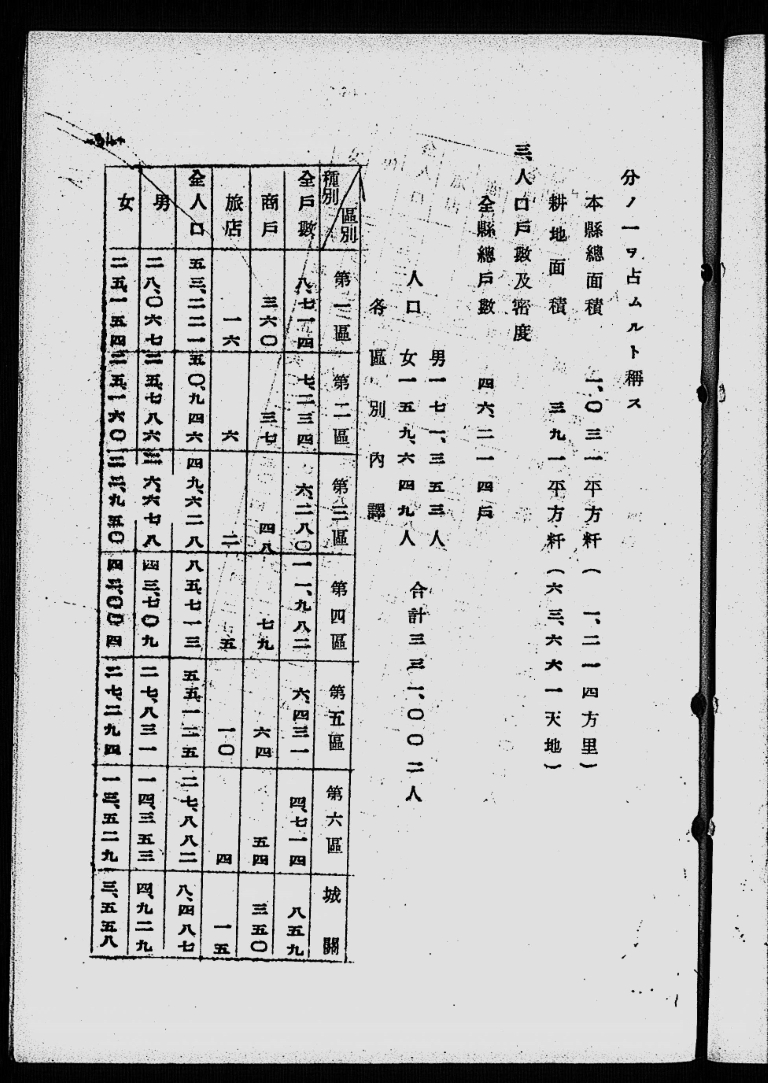 分ノ一ヲ占ムルト稱ス
本縣總面積 一、〇三一平方粁(一、二一四方里)
耕地面積 三九一平方粁(六三、六六一天地)
三、人口戶數及密度
全縣總戶數 四六、二一四戶
男一七一、三五三人
人口 合計三三一、〇〇二人
女一五九、六四九人
各區別內譯
種別 區別 第一區 第二區 第三區 第四區 第五區 第六區 城關
全戶數 八、七一四 七、二三四 六、二八〇 一一、九八二 六、四三一 四、七一四 八五九
商戶 三六〇 三七 四八 七九 六四 五四 三五〇
旅店 一六 六 二 五 一〇 四 一五
全人口 五三、二二一 五〇、九四六 四九、六二八 八五、七一三 五五、一二五 二七、八八二 八、四八七
男 二八、〇六七 二五、七八六 二六、六七八 四三、七〇九 二七、八三一 一四、三五三 四、九二九
女 二五、一五四 二五、一六〇 二二、九五〇 四二、〇〇四 二七、二九四 一三、五二九 三、五五八